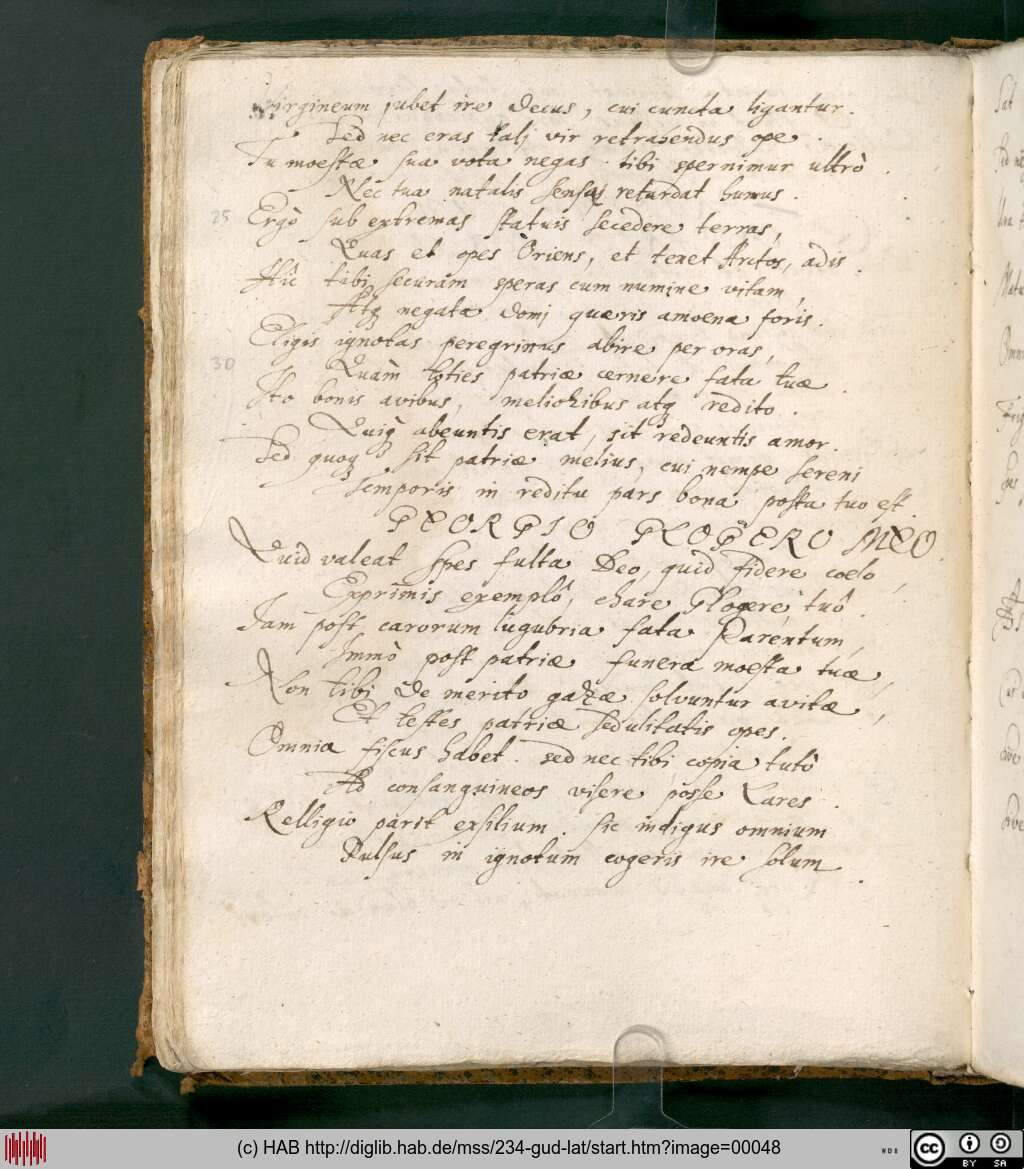 Virgineum jubet ire decus, cui cuncta ligantur.
Sed nec eras talj vir retrahendus ope.
Tu moestæ sua vota negas. tibi spernimur ultrò.
Nec tua natalis retardat humus.
25 Ergò sub extremas statuis secedere terras,
Quas et opes Oriens, et tenet Arctos, adis.
Hîc tibi securam speras cum numine vitam,
Atq; negata domj quæris amoena foris.
Eligis ignotas peregrinus abire per oras,
30 Quàm toties patriæ cernere fata tuæ.
Ito bonis avibus, melioribus atq; redito.
Quiq; abeuntis erat, sit redeuntis amor.
Sed quoq; sit patriæ melius, cui nempe sereni
Temporis in reditu pars bona posta tuo est.
GEORGIO GLOGERO MEO.
Quid valeat spes fulta Deo, quid fidere coelo,
Exprimis exemplô, chare Glogere, tuô.
Jam post carorum lugubria fata Parentum,
Immò post patriæ funera moesta tuæ,
Non tibi de merito gazæ solvuntur avitæ,
Et testes patriæ sedulitatis opes.
Omnia fiscus habet. sed nec tibi copia tutô
Ad consanguineos visere posse Lares.
Relligio parit exsilium. sic indigus omnium
Pulsus in ignotum cogeris ire solum.
(c) HAB http://diglib.hab.de/mss/234-gud-lat/start.htm?image=00048
WDB
cc BY SA